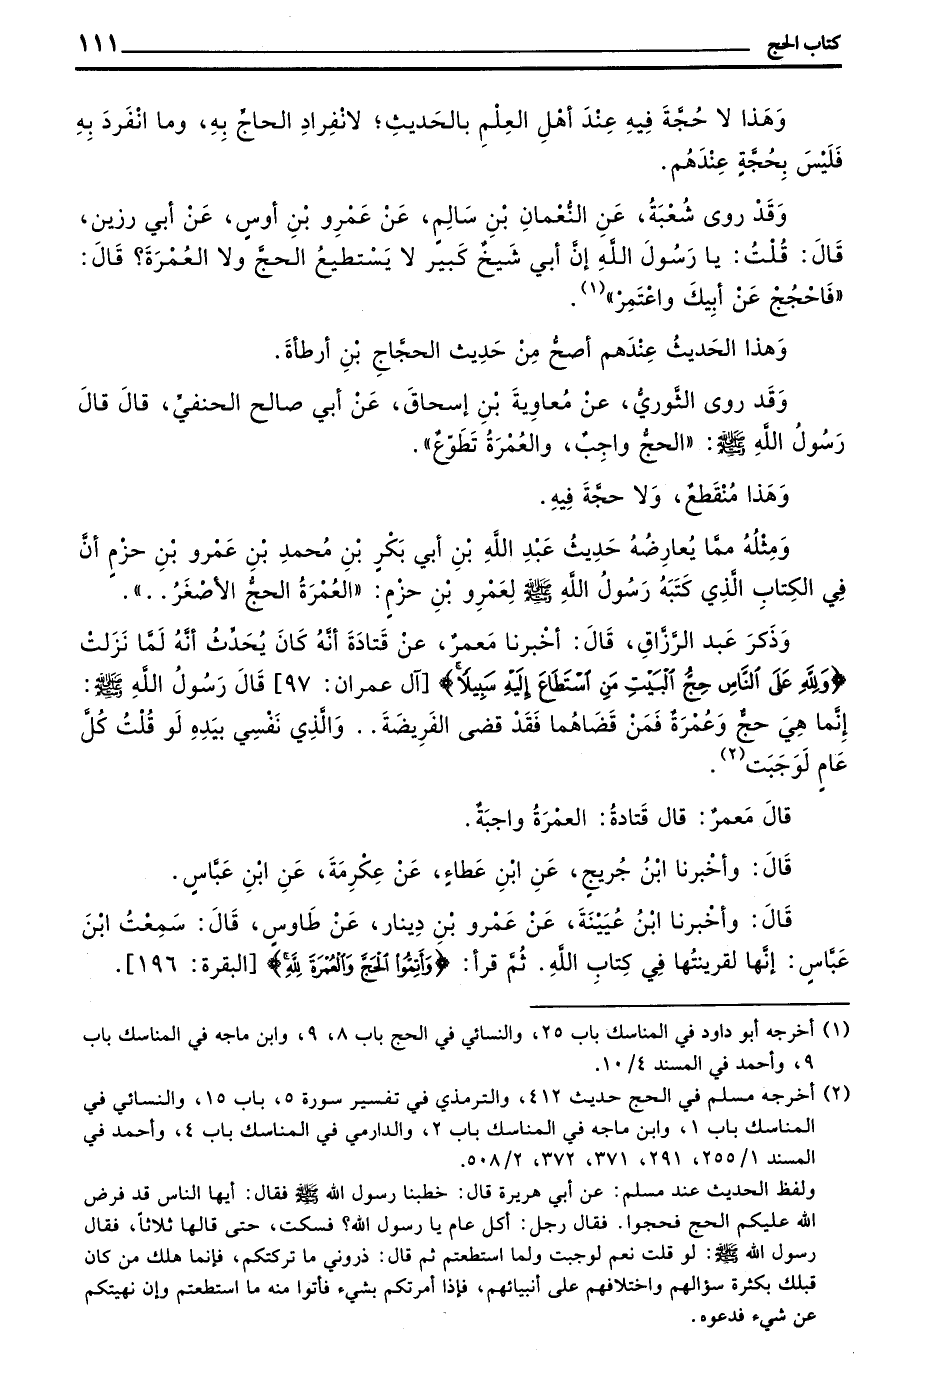 كتاب الحج ١١١
وَهَذا لا حُجَّةَ فِيهِ عِنْدَ أهْلِ العِلْمِ بالحَديثِ؛ لانْفِرادِ الحاجِّ بِهِ، وما انْفَردَ بِهِ
فَلَيْسَ بِحُجَّةٍ عِنْدَهُم.
وَقَدْ روى شُعْبَةُ، عَنِ النُّعْمانِ بْنِ سَالِمٍ، عَنْ عَمْرِو بْنِ أوسٍ، عَنْ أبي رزين،
قَالَ: قُلْتُ: يا رَسُولَ اللَّهِ إنَّ أبي شَيخٌ كَبيرٌ لا يَسْتطيعُ الحجَّ ولا العُمْرَةَ؟ قَالَ:
«فَاحْجُجْ عَنْ أبِيكَ واعْتَمِرْ»(١).
وَهذا الحَديثُ عِنْدَهم أصَحُّ مِنْ حَدِيث الحجَّاجِ بْنِ أرطأةَ.
وَقَد روى الثَّوريُّ، عنْ مُعاويةَ بْنِ إسحاقَ، عَنْ أبي صالح الحنفيِّ، قالَ قالَ
رَسُولُ اللَّهِ ﷺ: «الحجُّ واجِبٌ، والعُمْرَةُ تَطَوّعٌ».
وَهَذا مُنْقَطعٌ، وَلا حجَّةَ فِيهِ.
وَمِثْلُهُ ممَّا يُعارِضُهُ حَدِيثُ عَبْدِ اللَّهِ بْنِ أبي بَكْرِ بْنِ مُحمدِ بْنِ عَمْرِو بْنِ حزْمٍ أنَّ
فِي الكِتابِ الَّذِي كَتَبَهُ رَسُولُ اللَّهِ ﷺ لِعَمْرِو بْنِ حزْمٍ: «العُمْرَةُ الحجُّ الأصْغَرُ..».
وَذَكَرَ عَبد الرَّزاقِ، قَالَ: أخْبرنا مَعمرٌ، عنْ قتادَةَ أنَّهُ كَانَ يُحَدِّثُ أنَّهُ لَمَّا نَزَلتْ
﴿وَلِلَّهِ عَلَى ٱلنَّاسِ حِجُّ ٱلْبَيْتِ مَنِ ٱسْتَطَاعَ إِلَيْهِ سَبِيلًاۚ﴾ [آل عمران: ٩٧] قَالَ رَسُولُ اللَّهِ ﷺ:
إنَّما هِيَ حجٌّ وَعُمْرَةٌ فَمَنْ قَضَاهُما فَقَدْ قضى الفَرِيضَةَ.. وَالَّذِي نَفْسِي بيَدِهِ لَو قُلْتُ كُلَّ
عَامٍ لَوَجَبَت(٢).
قالَ مَعمرٌ: قال قَتادةُ: العمْرَةُ واجبَةٌ.
قَالَ: وأخْبرنا ابْنُ جُريجٍ، عَنِ ابْنِ عَطاءٍ، عَنْ عِكْرِمَةَ، عَنِ ابْنِ عَبَّاسٍ.
قَالَ: وأخْبرنا ابْنُ عُيَيْنَةَ، عَنْ عَمْرِو بْنِ دِينار، عَنْ طَاوسٍ، قَالَ: سَمِعْتُ ابْنَ
عَبَّاسٍ: إنَّها لقرينتُها فِي كِتابِ اللَّهِ. ثُمَّ قرأ: ﴿وَأَتِمُّوا۟ ٱلْحَجَّ وَٱلْعُمْرَةَ لِلَّهِۚ﴾ [البقرة: ١٩٦].
(١) أخرجه أبو داود في المناسك باب ٢٥، والنسائي في الحج باب ٨، ٩، وابن ماجه في المناسك باب
٩، وأحمد في المسند ١٠/٤.
(٢) أخرجه مسلم في الحج حديث ٤١٢، والترمذي في تفسير سورة ٥، باب ١٥، والنسائي في
المناسك باب ١، وابن ماجه في المناسك باب ٢، والدارمي في المناسك باب ٤، وأحمد في
المسند ٢٥٥/١، ٢٩١، ٣٧١، ٣٧٢، ٥٠٨/٢.
ولفظ الحديث عند مسلم: عن أبي هريرة قال: خطبنا رسول الله ﷺ فقال: أيها الناس قد فرض
الله عليكم الحج فحجوا. فقال رجل: أكل عام يا رسول الله؟ فسكت، حتى قالها ثلاثاً، فقال
رسول الله ﷺ: لو قلت نعم لوجبت ولما استطعتم ثم قال: ذروني ما تركتكم، فإنما هلك من كان
قبلك بكثرة سؤالهم واختلافهم على أنبيائهم، فإذا أمرتكم بشيء فأتوا منه ما استطعتم وإن نهيتكم
عن شيء فدعوه.